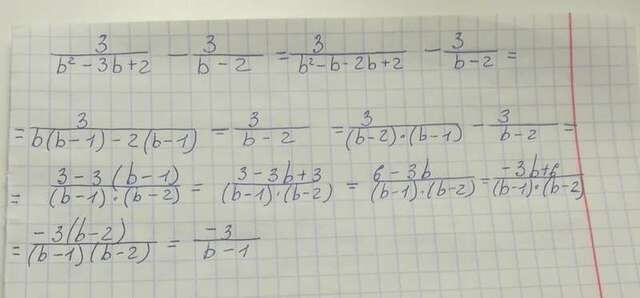 3/(b² - 3b + 2) - 3/(b - 2) = 3/(b² - b - 2b + 2) - 3/(b - 2) =
= 3/(b(b - 1) - 2(b - 1)) - 3/(b - 2) = 3/((b - 2)·(b - 1)) - 3/(b - 2) =
= (3 - 3(b - 1))/((b - 1)·(b - 2)) = (3 - 3b + 3)/((b - 1)·(b - 2)) = (6 - 3b)/((b - 1)·(b - 2)) = (-3b + 6)/((b - 1)·(b - 2))
= (-3(b - 2))/((b - 1)(b - 2)) = -3/(b - 1)